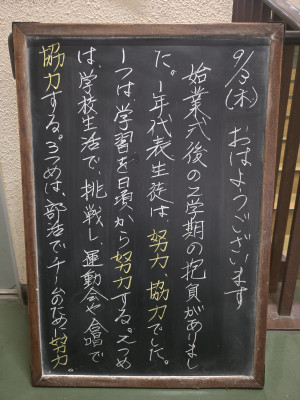 9/3(木) おはようございます
始業式後の2学期の抱負がありまし
た。1年代表生徒は、努力、協力でした。
1つは学習を日頃から努力する。2つめ
は、学校生活で、挑戦し、運動会や合唱で
協力する。3つめは、部活でチームのために努力。